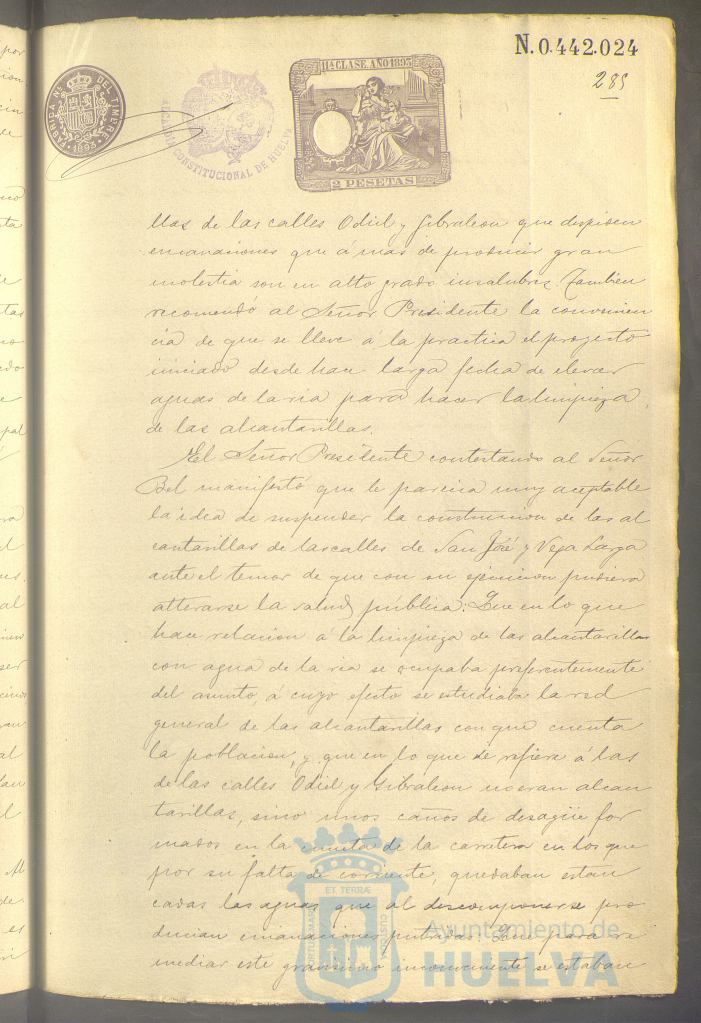 N.0.442.024
285
FABRICA NL. DEL TIMBRE
1893
ALCALDIA CONSTITUCIONAL DE HUELVA
11ª CLASE. AÑO 1893
2 PESETAS
llas de las calles Odiel y Gibraleon que despiden
emanaciones que á mas de producir gran
molestia son en alto grado insalubres. Tambien
recomendó al Señor Presidente la convenien
cia de que se lleve á la practica el proyecto
iniciado desde hace larga fecha de elevar
aguas de la ria para hacer la limpieza
de las alcantarillas.
El Señor Presidente contestando al Señor
Bel manifestó que le parecia muy aceptable
la idea de suspender la construccion de las al
cantarillas de las calles de San José y Vega Larga
ante el temor de que con su ejecucion pudiera
alterarse la salud pública: Que en lo que
hace relacion á la limpieza de las alcantarillas
con agua de la ria se ocupaba preferentemente
del asunto, á cuyo efecto se estudiaba la red
general de las alcantarillas con que cuenta
la poblacion, y que en lo que se refiere á las
de las calles Odiel y Gibraleon no eran alcan
tarillas, sino unos caños de desagüe for
mados en la cuneta de la carretera en los que
por su falta de corriente, quedaban estan
cadas las aguas que al descomponerse pro
ducian emanaciones putridas: Que para re
mediar este gravisimo inconveniente se estaban
PORTUS MARIS ET TERRÆ CUSTODIA
Ayuntamiento de
HUELVA